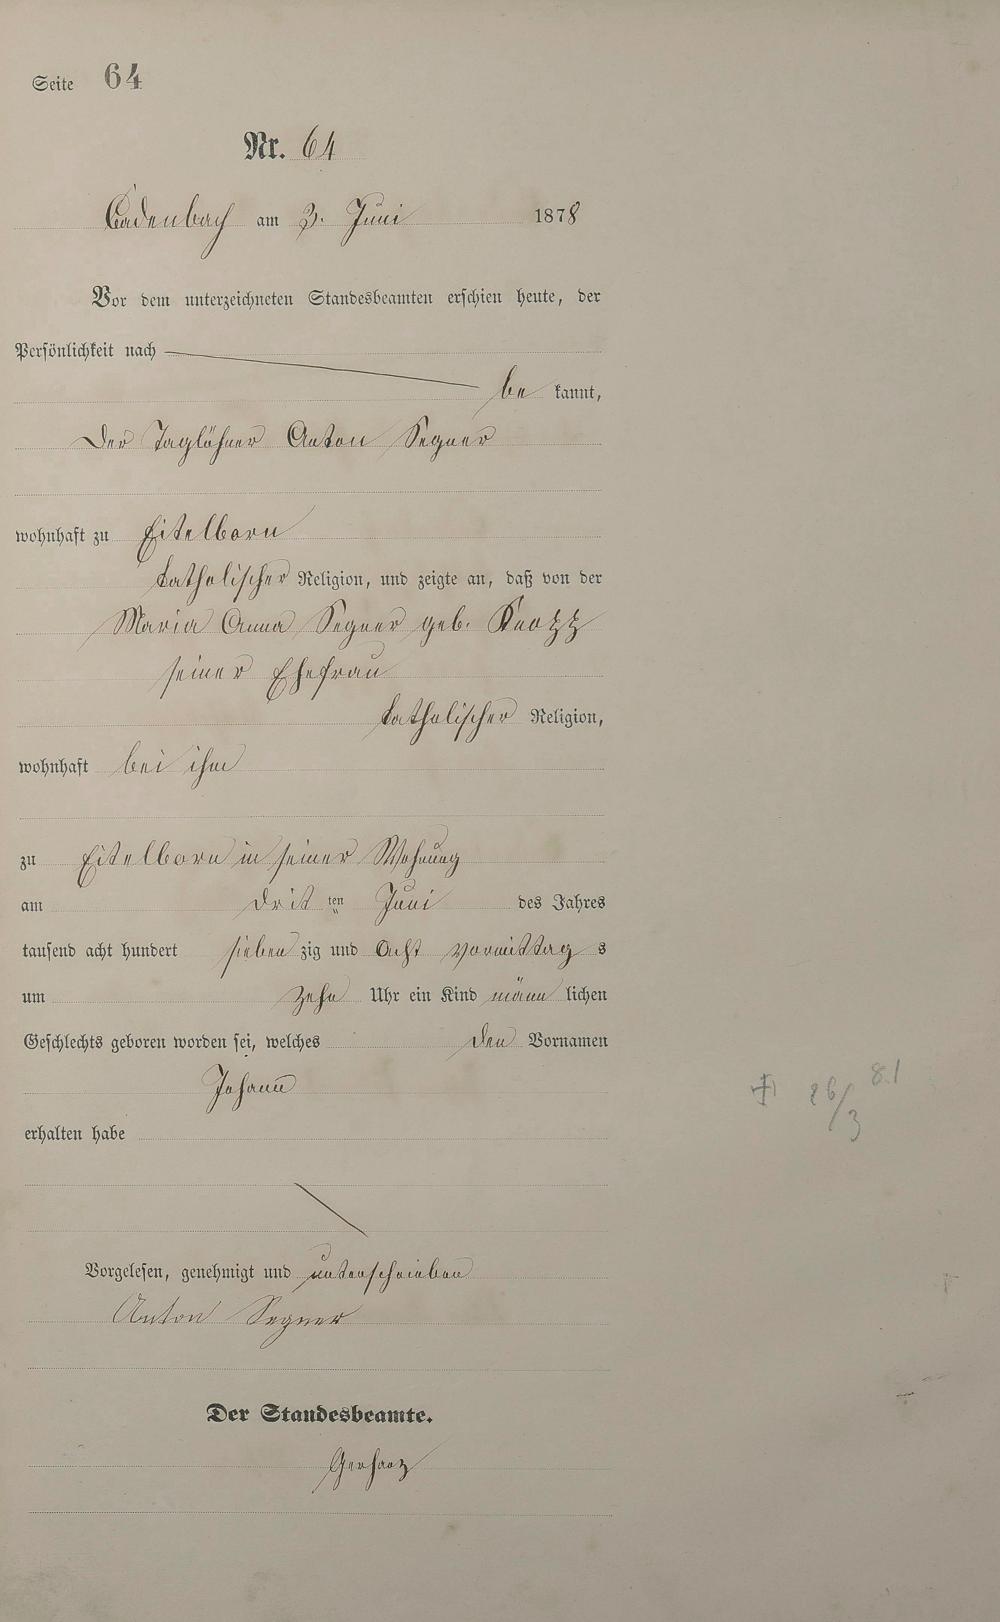 Seite 64
Nr. 64
Cadenbach am 3. Juni 1878
Vor dem unterzeichneten Standesbeamten erschien heute, der
Persönlichkeit nach
be kannt,
Der Taglöhner Anton Segner
wohnhaft zu Eitelborn
katholischer Religion, und zeigte an, daß von der
Maria Anna Segner geb. Knotz
seiner Ehefrau
katholischer Religion,
wohnhaft bei ihm
zu Eitelborn in seiner Wohnung
am drit ten Juni des Jahres
tausend acht hundert sieben zig und Acht vormittag s
um zehn Uhr ein Kind männ lichen
Geschlechts geboren worden sei, welches den Vornamen
Johann
erhalten habe
26/3 81
Vorgelesen, genehmigt und unterschrieben
Anton Segner
Der Standesbeamte.
Gerharz